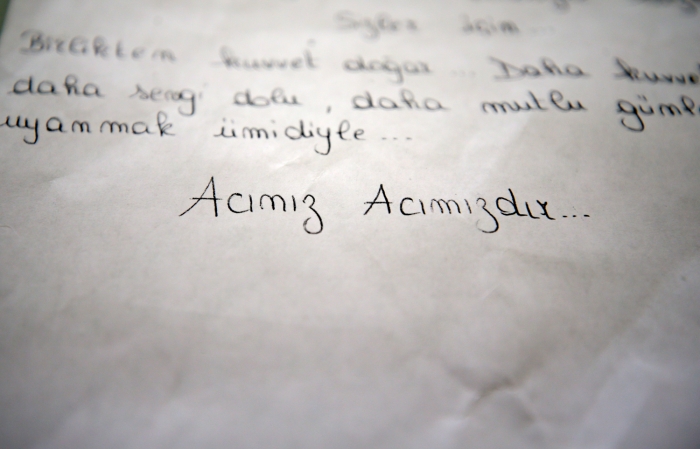 Sizler için...
Birlikten kuvvet doğar... Daha
daha sevgi dolu, daha mutlu
uyanmak ümidiyle...
Acımız Acımızdır...